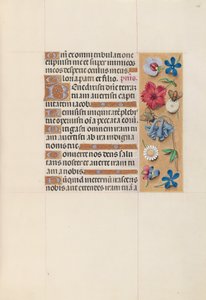 Qm ex omni tribulatione
eripuisti me et super inimicos
meos despexit oculus meus
Gloria patri et filio. psalmus.
Benedixisti domine terram
tuam avertisti capti
vitatem iacob.
Remisisti iniquitatem plebis
tue operuisti omnia peccata eorum.
Mitigasti omnem iram tu
am avertisti ab ira indigna
tionis tue.
Converte nos deus salu
taris noster et averte iram tu
am a nobis.
Nunquid in eternum irasceris
nobis aut extendes iram tuam a